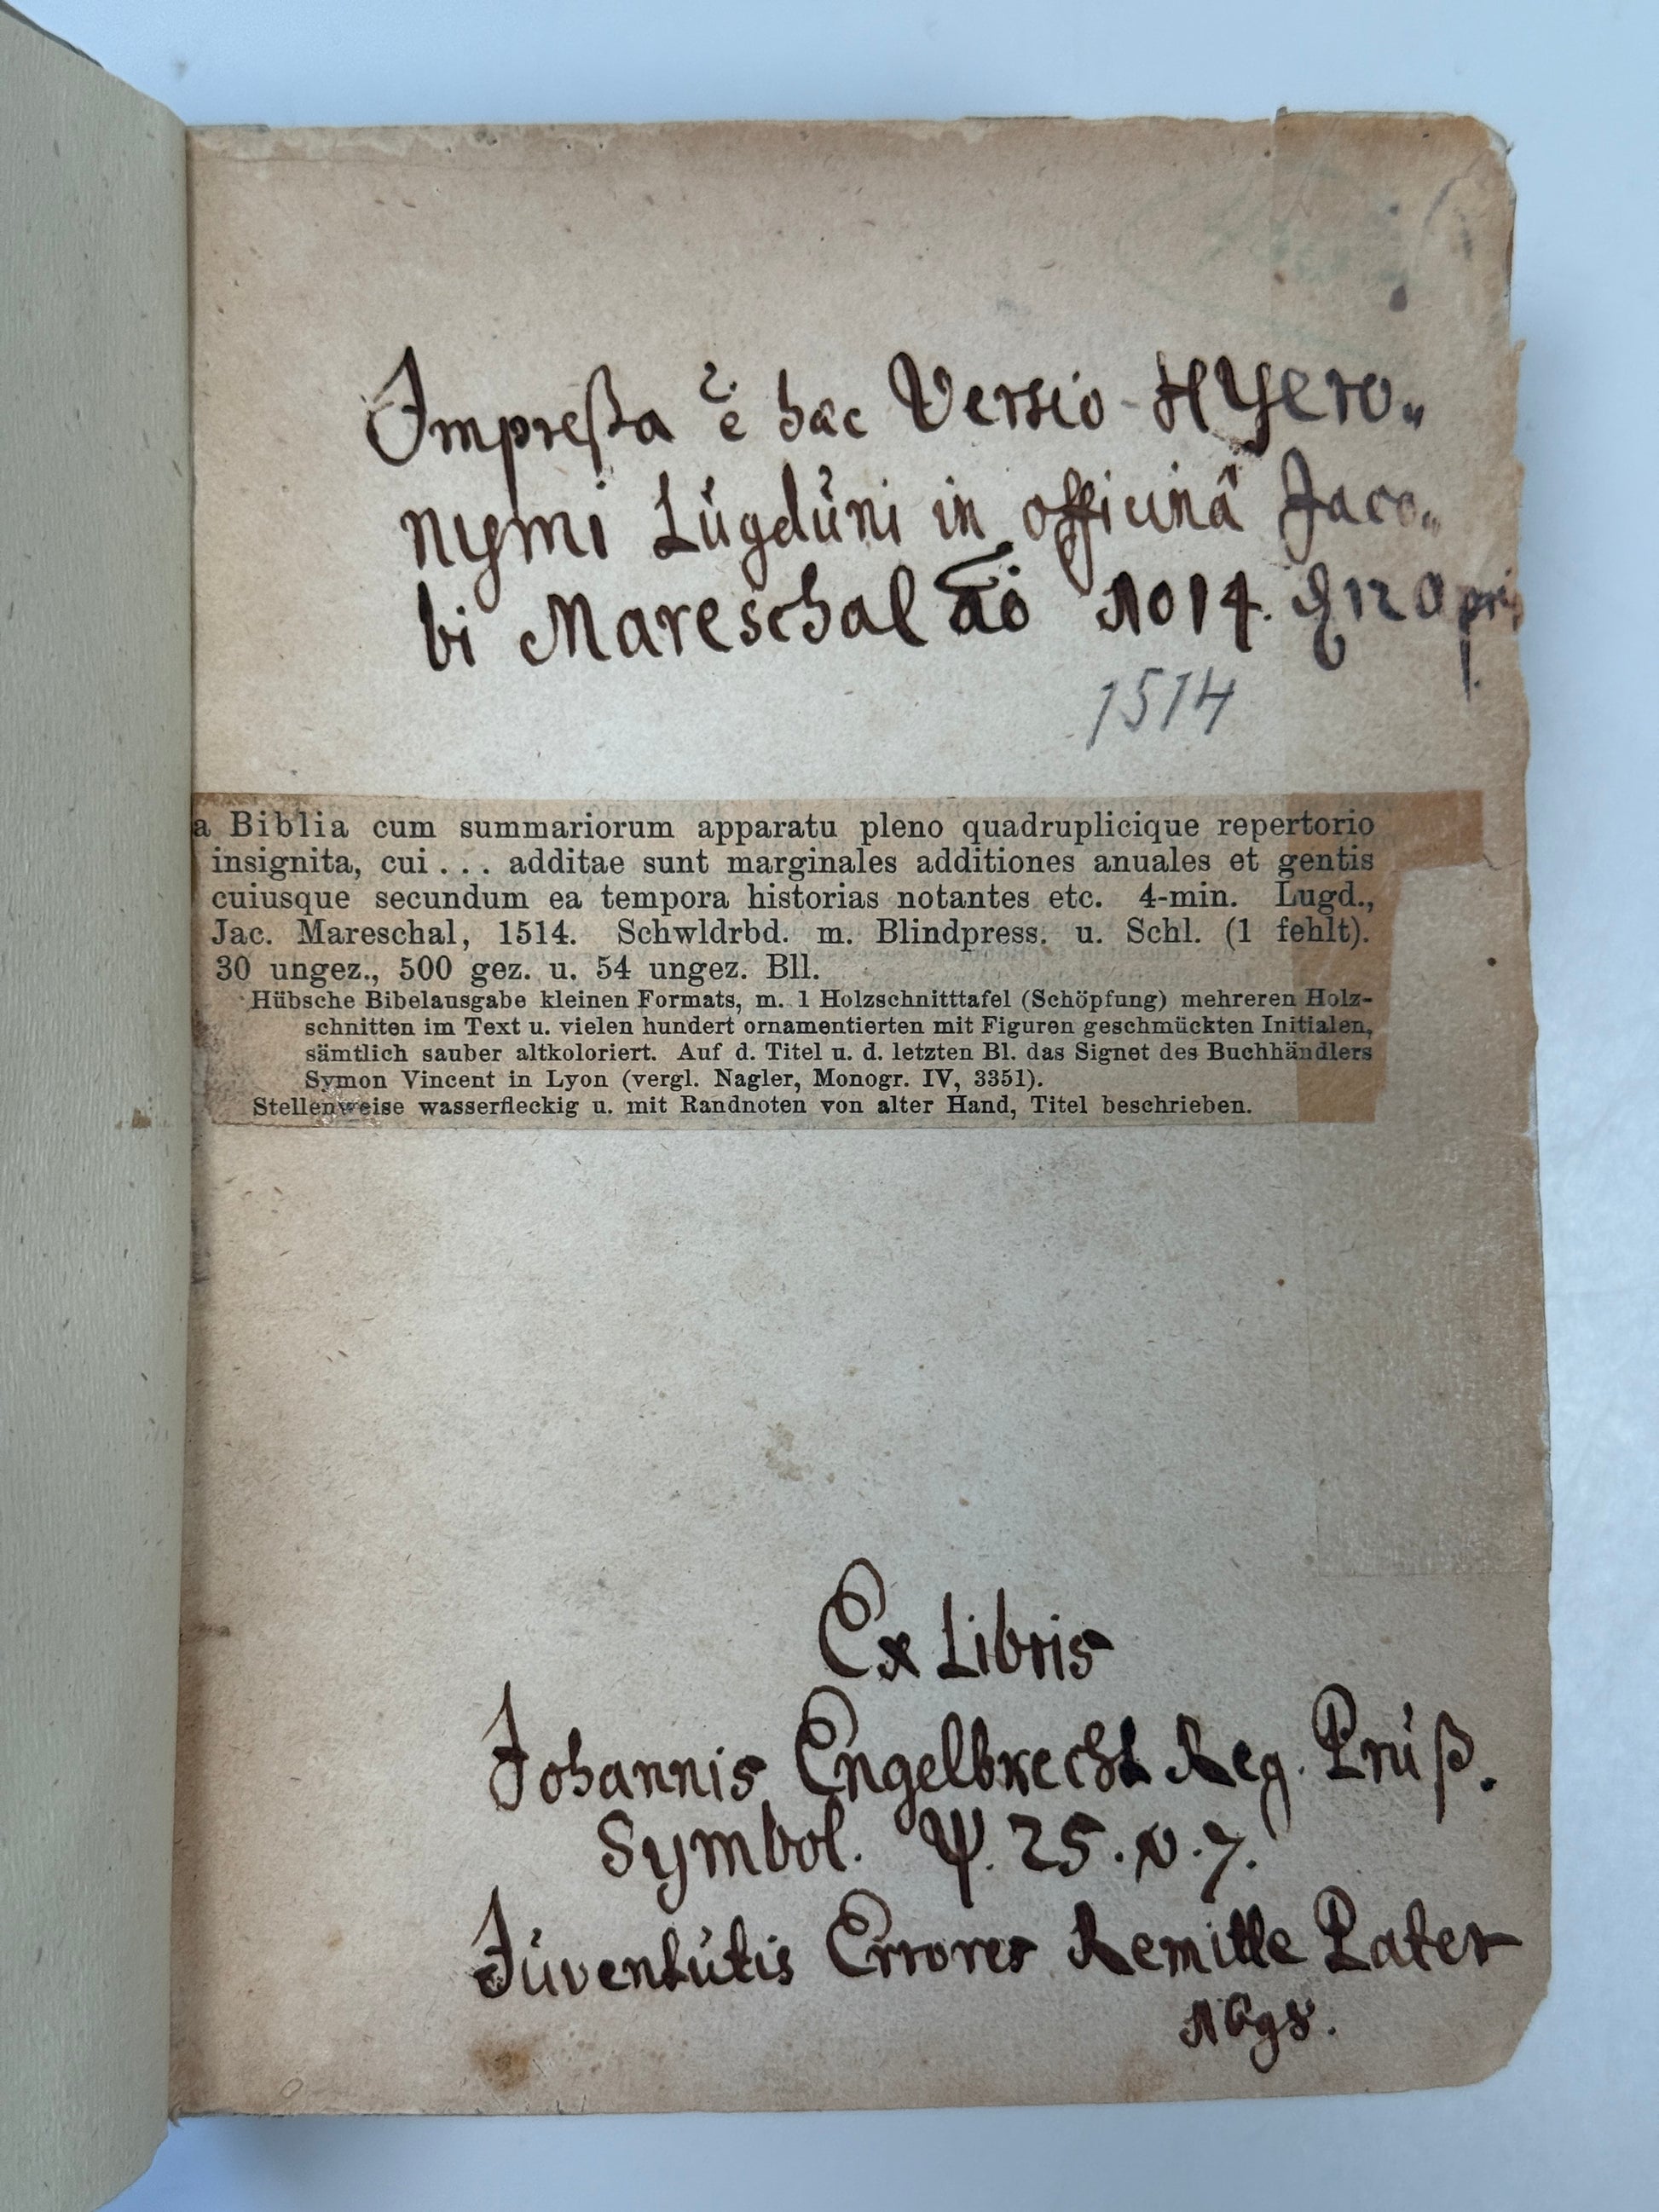 Impreßa ẽ hac Versio Hyero„
nymi Lúgdúni in officinâ Jaco„
bi Mareschal ao 1014. 12 Apri
l.
1514
a Biblia cum summariorum apparatu pleno quadruplicique repertorio
insignita, cui . . . additae sunt marginales additiones anuales et gentis
cuiusque secundum ea tempora historias notantes etc. 4-min. Lugd.,
Jac. Mareschal, 1514. Schwldrbd. m. Blindpress. u. Schl. (1 fehlt).
30 ungez., 500 gez. u. 54 ungez. Bll.
Hübsche Bibelausgabe kleinen Formats, m. 1 Holzschnitttafel (Schöpfung) mehreren Holz-
schnitten im Text u. vielen hundert ornamentierten mit Figuren geschmückten Initialen,
sämtlich sauber altkoloriert. Auf d. Titel u. d. letzten Bl. das Signet des Buchhändlers
Symon Vincent in Lyon (vergl. Nagler, Monogr. IV, 3351).
Stellenweise wasserfleckig u. mit Randnoten von alter Hand, Titel beschrieben.
Ex Libris
Johannis Engelbrecht Reg. Prúß.
Symbol. Ψ. 25. v. 7.
Júventútis Errores Remitte Pater
1698.